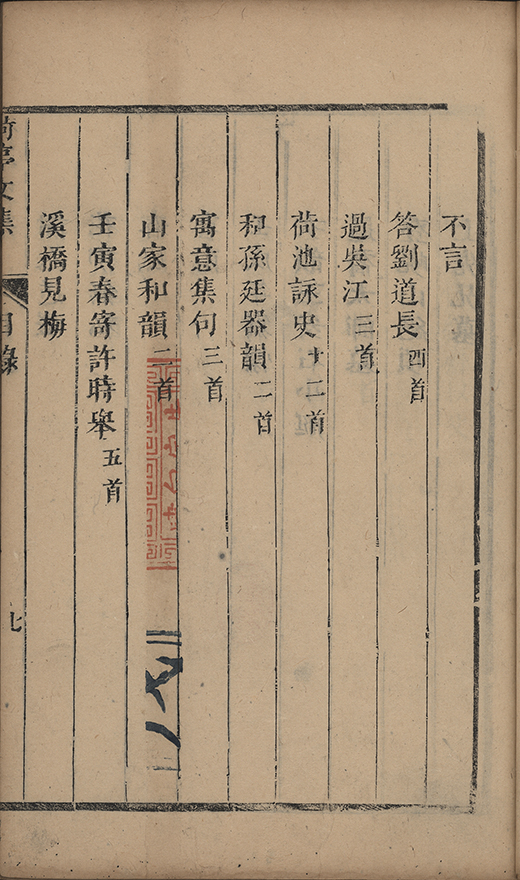 不言
答劉道長四首
過吳江三首
荷池詠史十二首
和孫廷器韻二首
寓意集句三首
山家和韻二首
壬寅春寄許時舉五首
溪橋見梅
荷亭文集
目錄